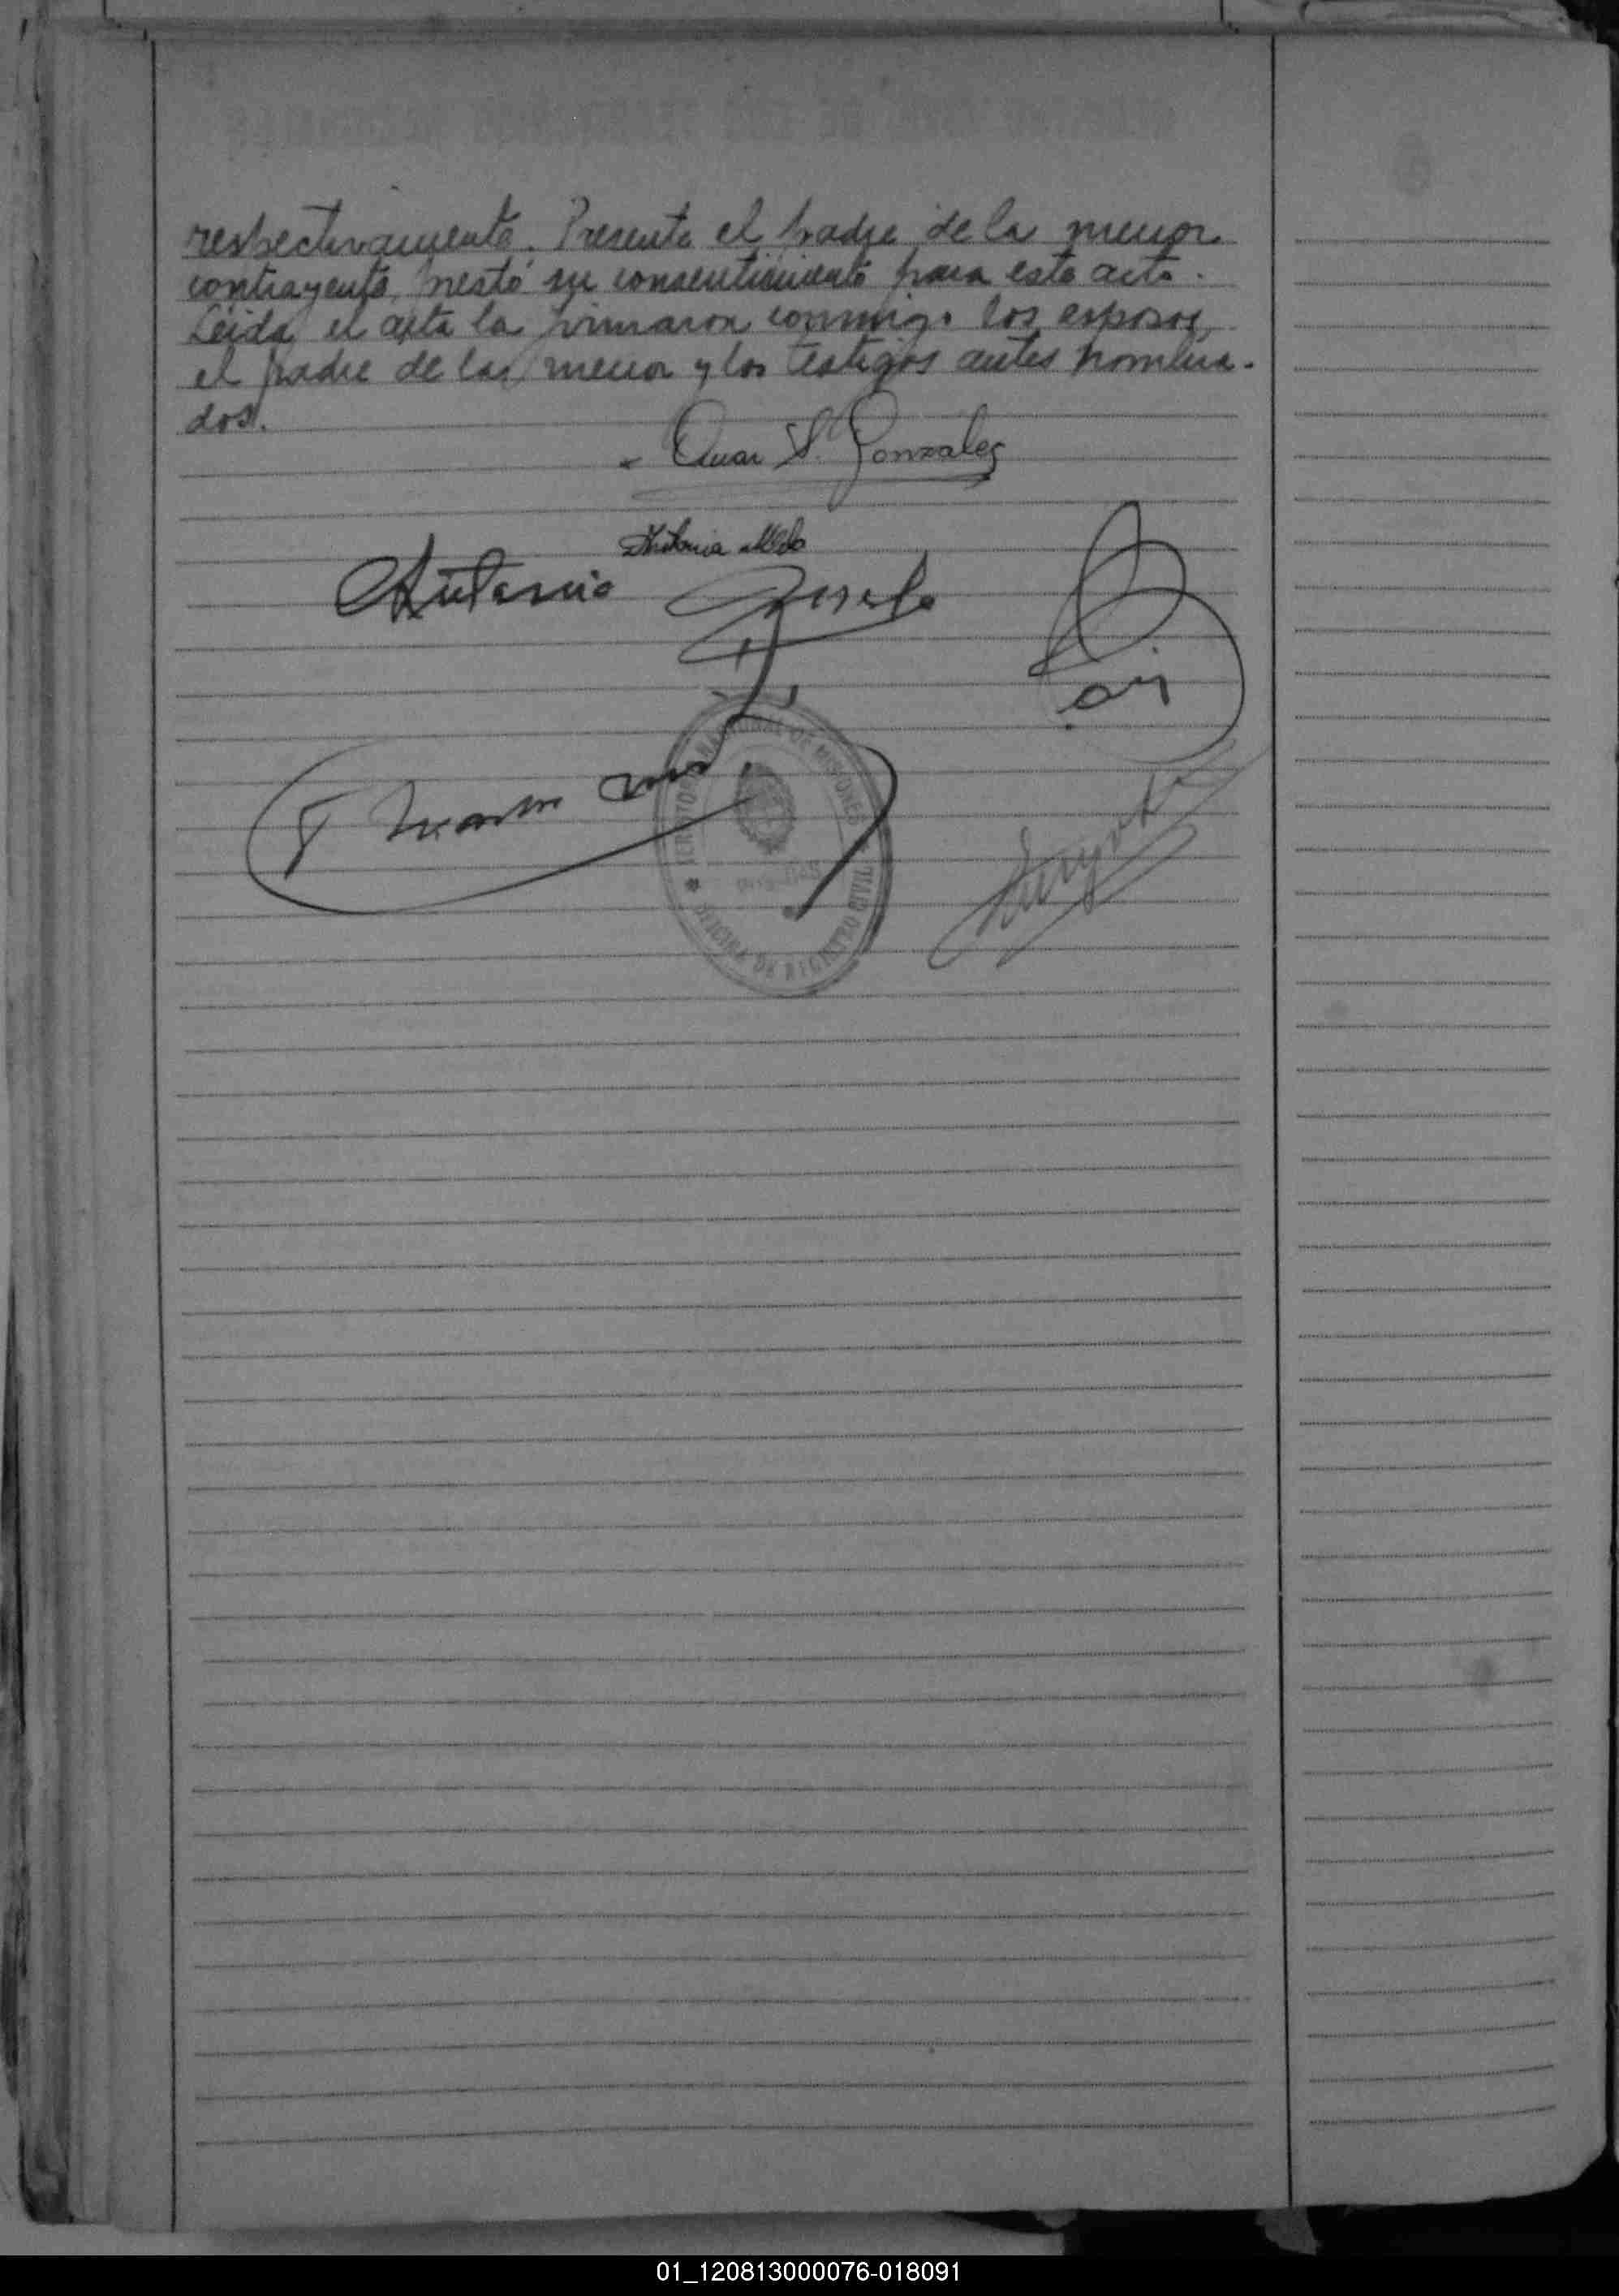 respectivamente. Presente el padre de la menor
contrayente, prestó su consentimiento para este acto.
Leida el acta la firmaron conmigo los esposos,
el padre de la menor y los testigos antes nombra-
dos.
S. Gonzales
Antonia
Antonio
TERRITORIO NACIONAL DE MISIONES
OFICINA DE REGISTRO CIVIL
01_120813000076-018091